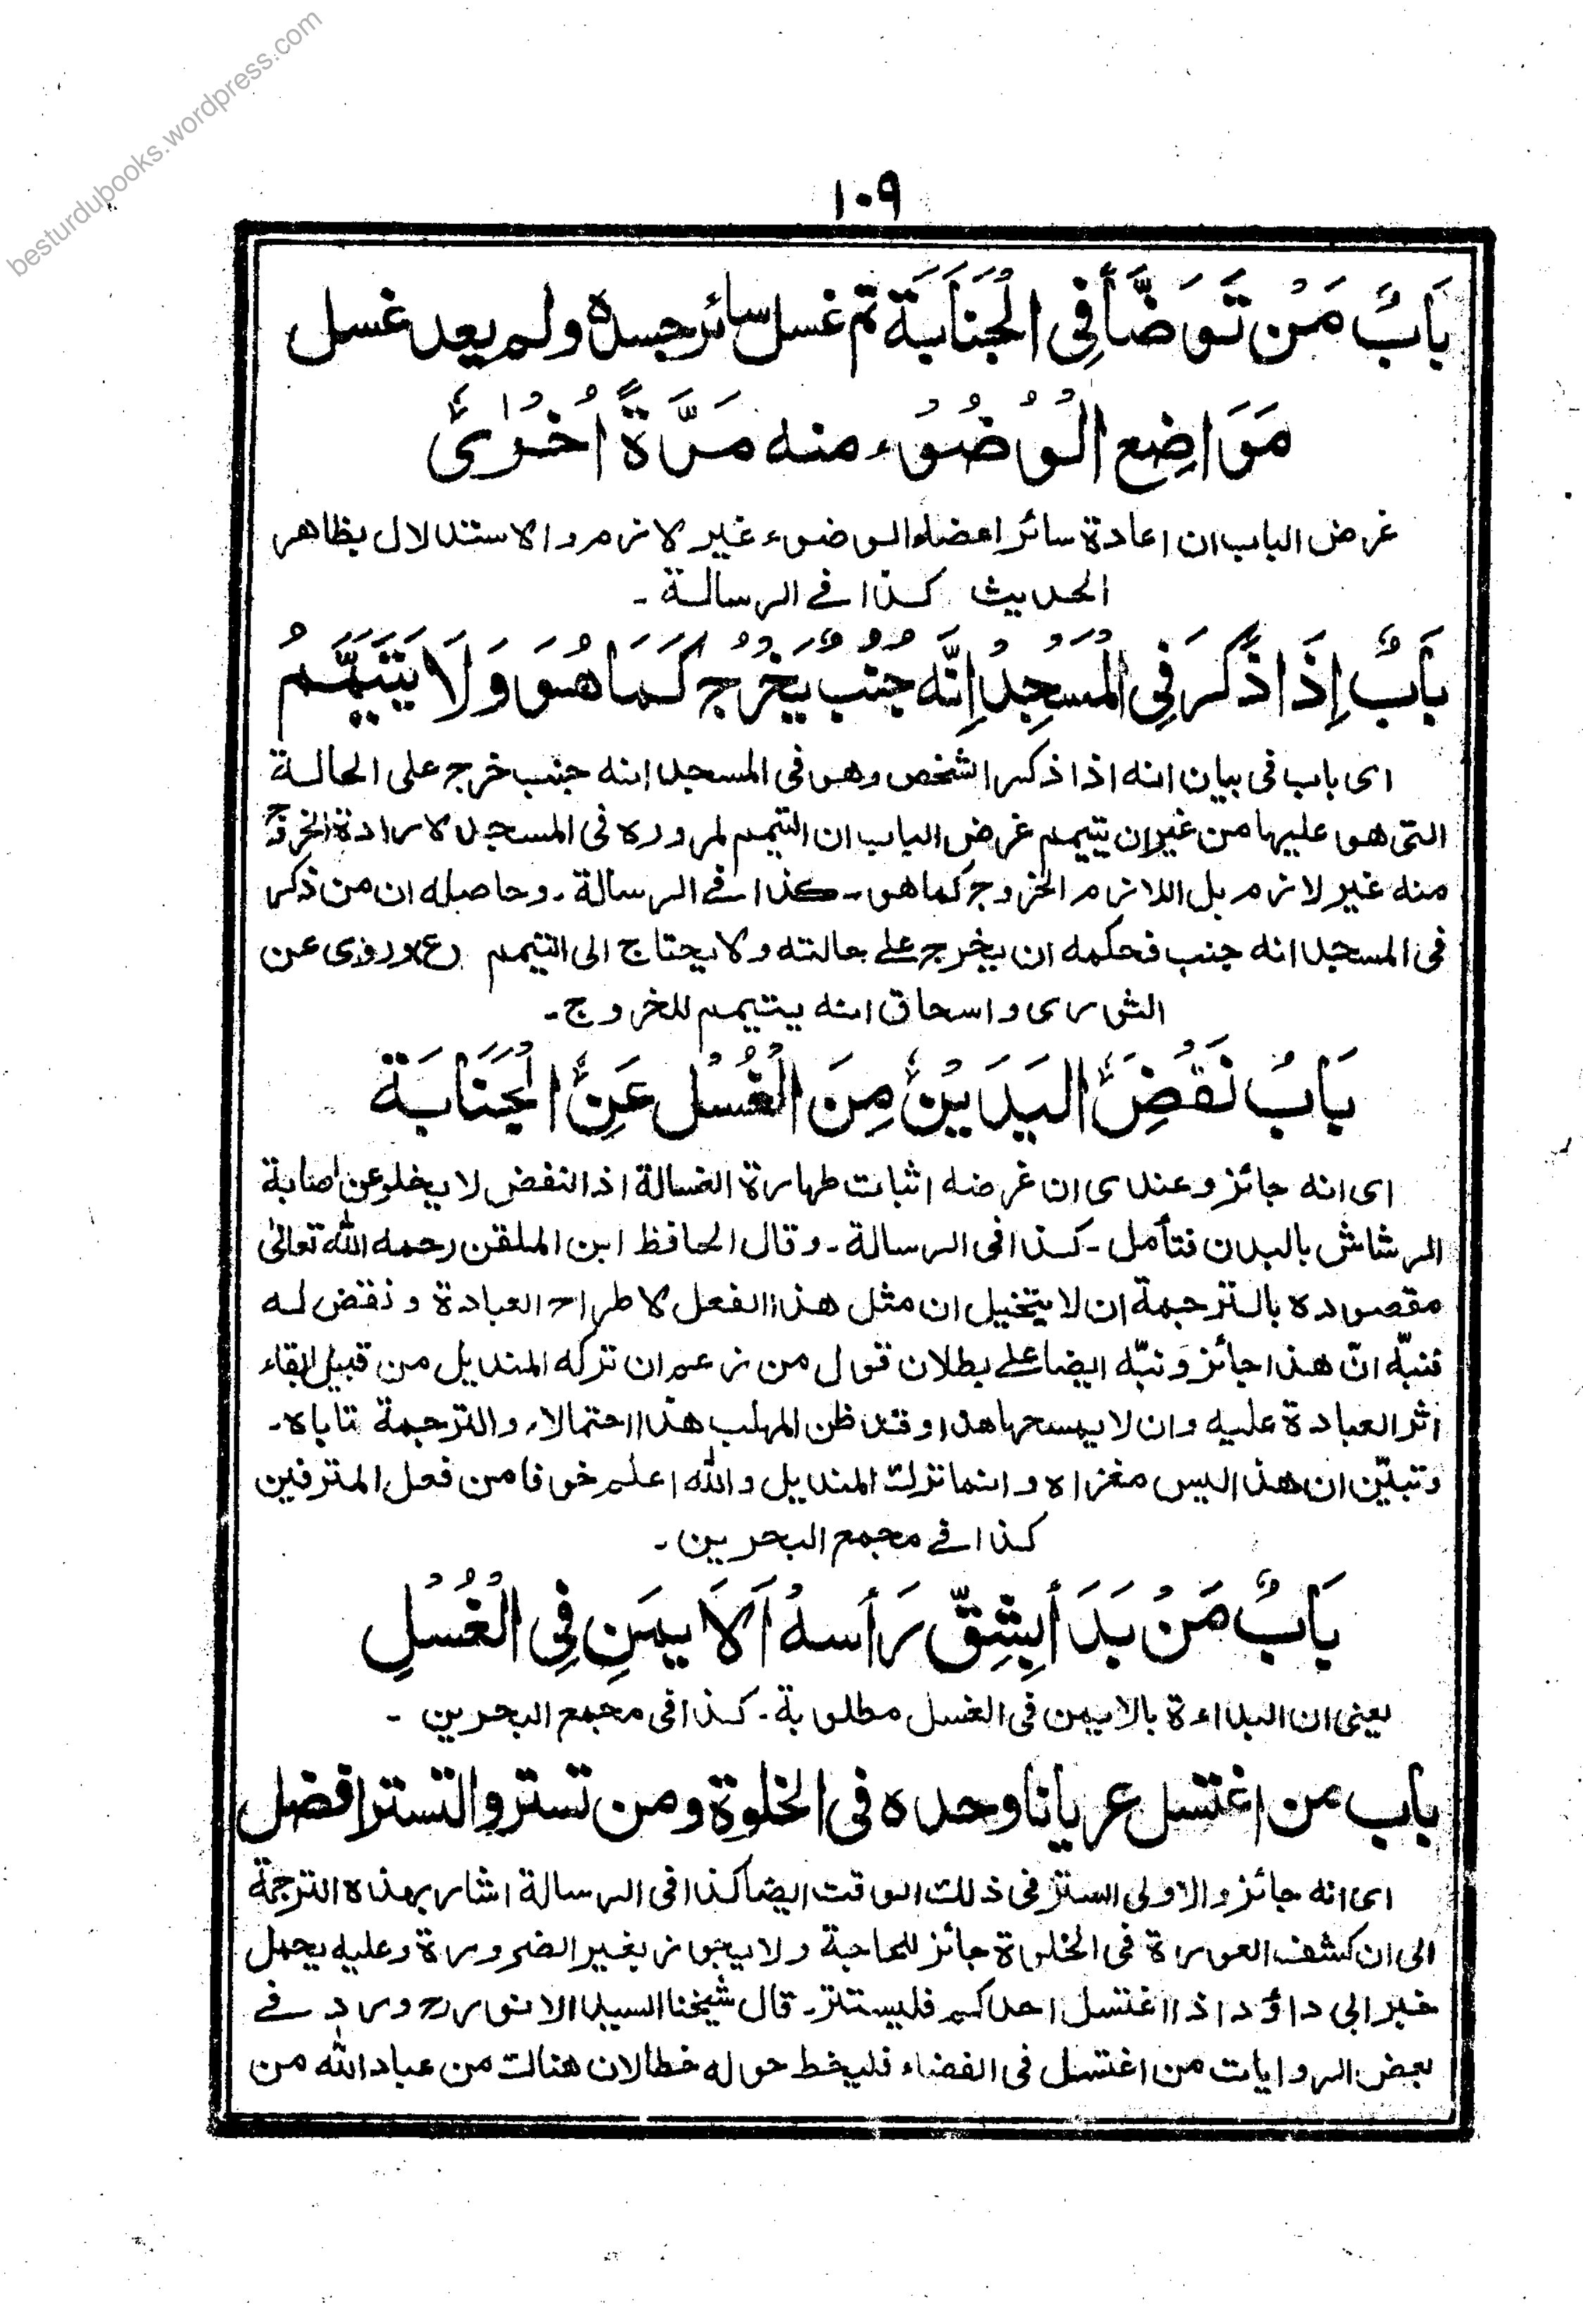 besturdubooks.wordpress.com
١٠٩
بَابُ مَنْ تَوَضَّأَ فِي الْجَنَابَةِ ثم غسل سائر جسده ولم يعد غسل
مَوَاضِع الْوُضُوْء منه مَرَّةً اُخْرٰى
غرض الباب ان اعادة سائر اعضاء الوضوء غير لازم والاستدلال بظاهر
الحديث كذا في الرسالة ۔
بَابٌ إِذَا ذَكَرَ فِي الْمَسْجِدِ إِنَّه جُنُبٌ يَخْرُجُ كَمَا هُوَ وَلَا يَتَيَمَّمُ
اى باب فى بيان انه اذا ذكر الشخص وهو فى المسجد انه جنب خرج على الحالة
التى هو عليها من غير ان يتيمم غرض الباب ان التيمم لمروره فى المسجد لارادة الخروج
منه غير لازم بل اللازم الخروج كما هو ۔ كذا في الرسالة ۔ وحاصله ان من ذكر
فى المسجد انه جنب فحكمه ان يخرج على حالته ولا يحتاج الى التيمم (ع) وروى عن
الثورى واسحاق انه يتيمم للخروج ۔
بَابُ نَفْضِ الْيَدَيْنِ مِنَ الْغُسْلِ عَنِ الْجَنَابَة
اى انه جائز وعندى ان غرضه اثبات طهارة الغسالة اذ النفض لا يخلو عن اصابة
الرشاش بالبدن فتأمل ۔ كذا فى الرسالة ۔ وقال الحافظ ابن الملقن رحمه الله تعالىٰ
مقصوده بالترجمة ان لا يتخيل ان مثل هذا الفعل لاطراح العبادة ونفض له
فنبّه انّ هذا جائز ونبّه ايضا على بطلان قول من زعم ان تركه المنديل من قبيل ابقاء
اثر العبادة عليه وان لا يمسحها هذا وقد ظن المهلب هذا احتمالا، والترجمة تاباه ۔
وتبيّن ان هذا ليس مغزاه وانما ترك المنديل والله اعلم خوفا من فعل المترفين
كذا في مجمع البحرين ۔
بَابُ مَنْ بَدَأَ بِشِقِّ رَأْسِهِ الْاَيْمَنِ فِي الْغُسْلِ
يعنى ان البداءة بالايمن فى الغسل مطلوبة ۔ كذا فى مجمع البحرين ۔
باب من اغتسل عريانا وحده فى الخلوة ومن تستر والتستر افضل
اى انه جائز والاولى الستر فى ذلك الوقت ايضا كذا فى الرسالة اشار بهذه الترجمة
الى ان كشف العورة فى الخلوة جائز للحاجة ولا يجوز بغير الضرورة وعليه يحمل
خبر ابى داؤد اذا اغتسل احدكم فليستتر ۔ قال شيخنا السيد الانور رح ورد في
بعض الروايات من اغتسل فى الفضاء فليخط حوله خطا لان هنالك من عباد الله من